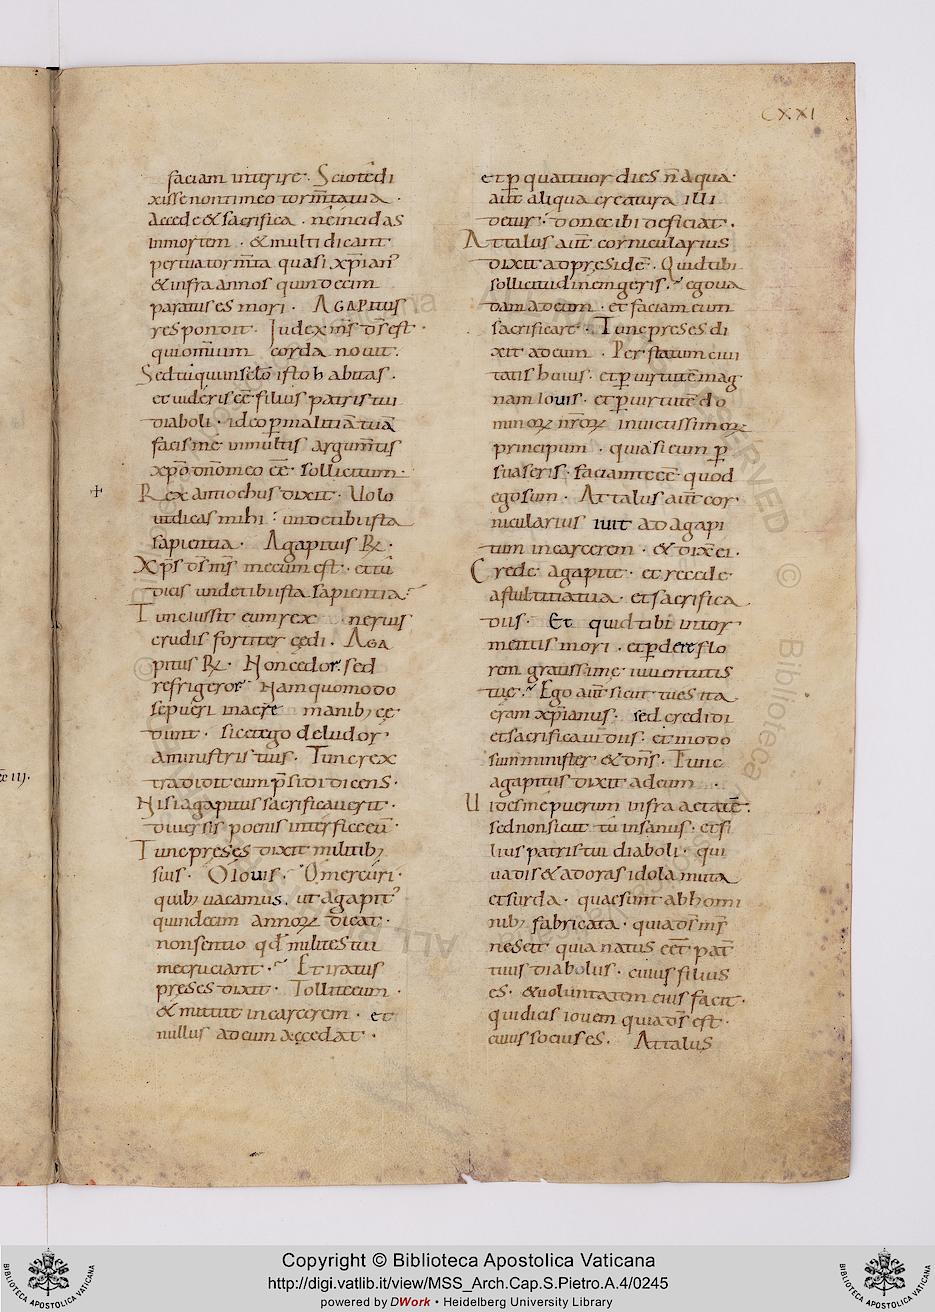 CXXI
faciam interire. Scio te di
xisse non timeo tormta tua.
Accede & sacrifica. nē incidas
inmortem. & multi dicant
per tua tormta quasi xpian'
& infra annos quindecim
paratus es mori. AGAPItus
respondit. Judex mf df est.
qui omium corda nouit.
Sed tu qui in selo isto habitas.
et uideris eē filius patris tui
diaboli. ideo p malitiā tuā
facis me inmultis argumtis
xpo dno meo eē sollicitum.
Rex antiochus dixit. Uolo
ut dicas mihi. unde tibi ista
sapientia. Agapitus R.
Xps df mf mecum est. et tu
dicis unde tibi ista sapientia?
Tunc iussit eum rex neruis
crudis fortiter cędi. AGA
pitus R. Non cedor. sed
refrigeror. Nam quomodo
si pueri in aere manib; cę
dunt. sic et ego deludor
a ministris tuis. Tunc rex
tradidit eum psidi dicens.
Nisi agapitus sacrificauerit.
diuersis poenis interfice eū.
Tunc preses dixit militib;
suis. O iouis. O mercuri.
quib; uacamus. ut agapit'
quindecim annoꝝ dicat.
non sentio qd milites tui
me cruciant. Et iratus
preses dixit. Tollite eum.
& mittite in carcerem. et
nullus ad eum accedat.
et p quattuor dies n aqua.
aut aliqua creatura illi
detur. donec ibi deficiat.
Attalus aut cornicularius
dixit ad preside. Quid tibi
sollicitudinem geris. ego ua
dam ad eum. et faciam eum
sacrificare. Tunc preses di
xit ad eum. Per statum ciui
tatis huius. et p uirtutē mag
nam Iouis. et p uirtutē do
minoꝝ nroꝝ inuictissimoꝝ
principum. quia si eum p
suaseris. faciam te eē quod
ego sum. Attalus aut cor
nicularius iuit ad agapi
tum in carcerem. & dix ei.
Crede agapite. et recede
a stultitia tua. et sacrifica
diis. Et quid tibi in tor
mentis mori. et pdere flo
rem gratissime iuuentutis
tuę. Ego aut sicut tu es ita
eram xpianus. sed credidi
et sacrificaui diis. et modo
sum minister & dns. Tunc
agapitus dixit ad eum
Uides me puerum infra aetatē.
sed non sicut tu insanus. et fi
lius patris tui diaboli. qui
uadis & adoras idola muta
et surda. quae sunt ab homi
nib; fabricata. quia df mf
nescit quia natus eēt pat
tuus diabolus. cuius filius
es. & uoluntatem eius facit.
qui dicis iouem quia df est.
cuius socius es. Attalus
Copyright © Biblioteca Apostolica Vaticana
http://digi.vatlib.it/view/MSS_Arch.Cap.S.Pietro.A.4/0245
powered by DWork • Heidelberg University Library